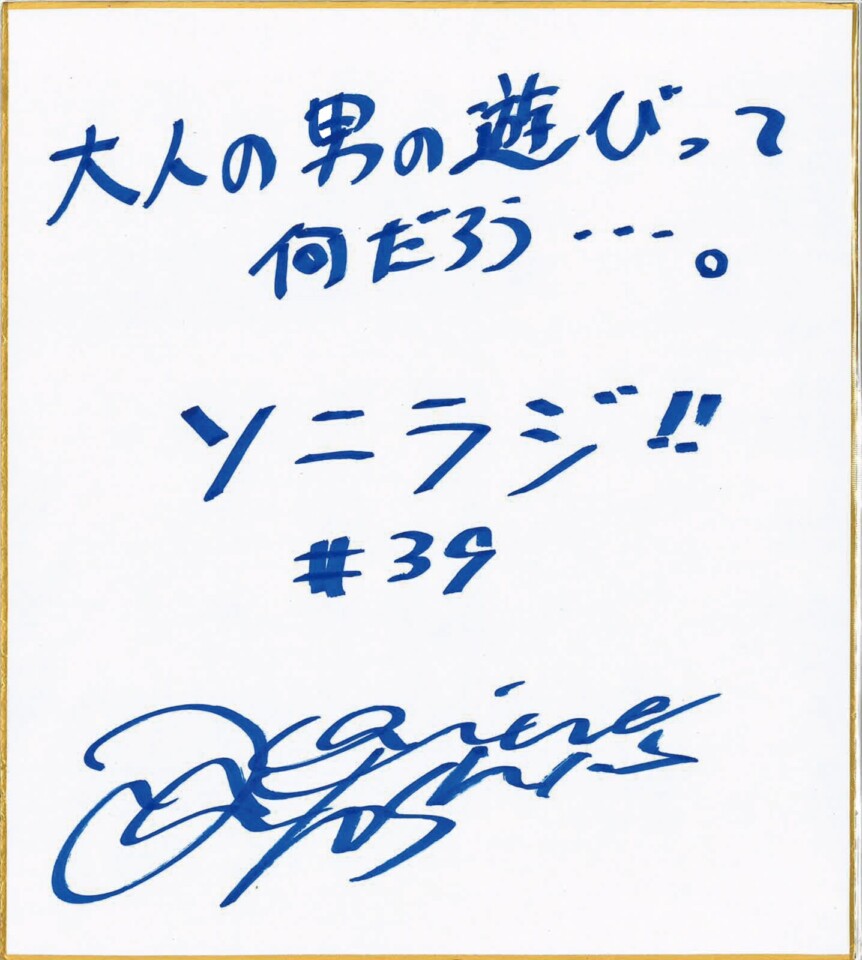 大人の男の遊びって
何だろう…。
ソニラジ!!
#39